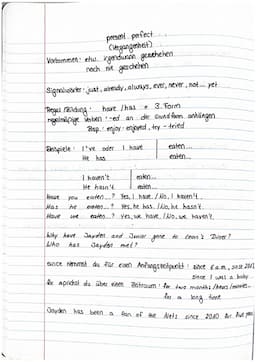 present perfect
(Vergangenheit)
Vorkommen: etw. irgendwann geschehen
noch nie geschehen
Signalwörter: just, already, always, ever, never, not... yet
Regel Bildung: have / has + 3. Form
regelmäßige Verben: -ed an die Grundform anhängen
Bsp.: enjoy - enjoyed, try - tried
Beispiele: I've oder I have eaten...
He has eaten...
I haven't eaten...
He hasn't eaten...
Have you eaten...? Yes, I have. / No, I haven't.
Has he eaten...? Yes, he has. / No, he hasn't.
Have we eaten...? Yes, we have. / No, we haven't.
Why have Jayden and Junior gone to Leon's Diner?
Who has Jayden met?
since nimmst du für einen Anfangszeitpunkt: since 6 a.m., since 2010
since I was a baby
for sprichst du über einen Zeitraum: for two months / years / weeks...
for a long time
Jayden has been a fan of the Nets since 2010 / for five years